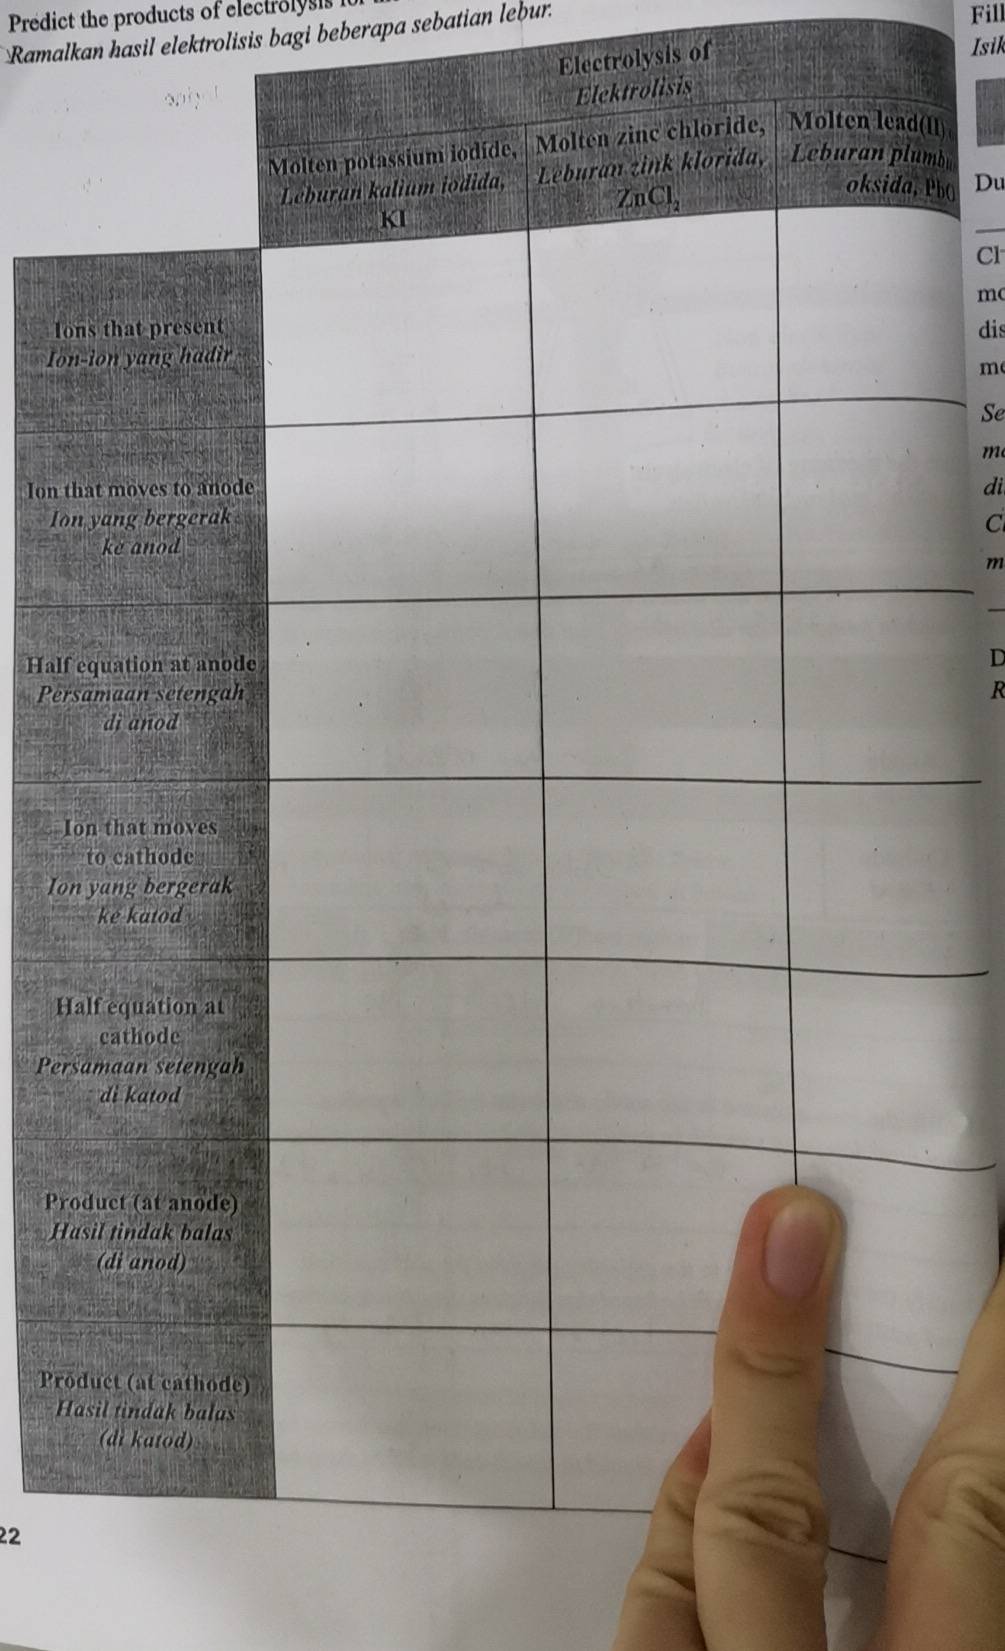 Predict the products of electrolysis
Ramalkan hasil elektrolisis bagi beberapa sebatian lebur.
Electrolysis of
Elektrolisis
Molten potassium iodide,
Leburan kalium iodida,
KI
Molten zinc chloride,
Leburan zink klorida,
ZnCl₂
Molten lead(II)
Leburan plumbu
oksida, PbO
Ions that present
Ion-ion yang hadir
Ion that moves to anode
Ion yang bergerak
ke anod
Half equation at anode
Persamaan setengah
di anod
Ion that moves
to cathode
Ion yang bergerak
ke katod
Half equation at
cathode
Persamaan setengah
di katod
Product (at anode)
Hasil tindak balas
(di anod)
Product (at cathode)
Hasil tindak balas
(di katod)
22
Fill
Isik
Du
Cl⁻
mo
dis
me
Se
me
di
C
m
D
R